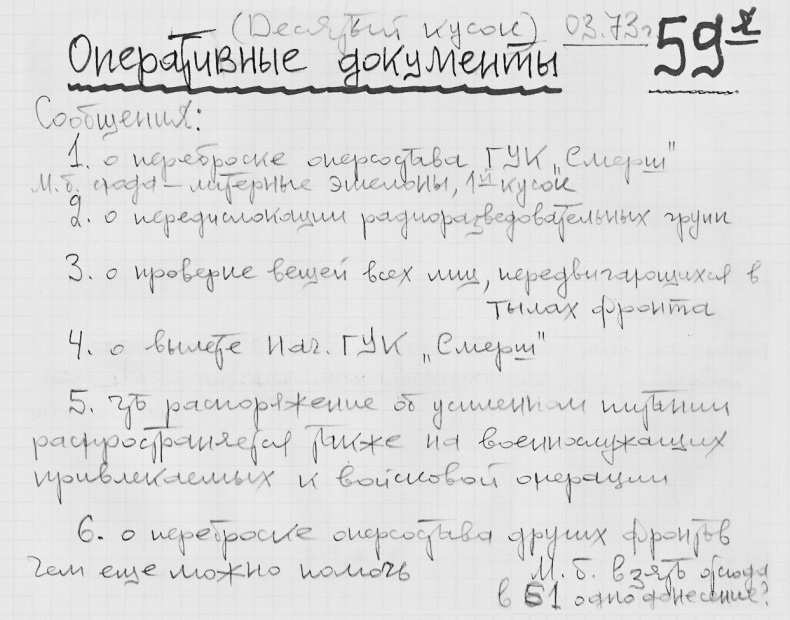 (Десятый кусок) 03.73г 59я
Оперативные документы
Сообщения:
1. о переброске оперсостава ГУК „Смерш"
М.б. сюда – литерные эшелоны, 1й кусок
2. о передислокации радиоразведовательных групп
3. о проверке вещей всех лиц, передвигающихся в
тылах фронта
4. о вылете Нач. ГУК „Смерш"
5. что распоряжение об усиленном питании
распространяется также на военнослужащих
привлекаемых к войсковой операции
6. о переброске оперсостава других фронтов
чем еще можно помочь М.б. взять отсюда
в 51 одно донесение?